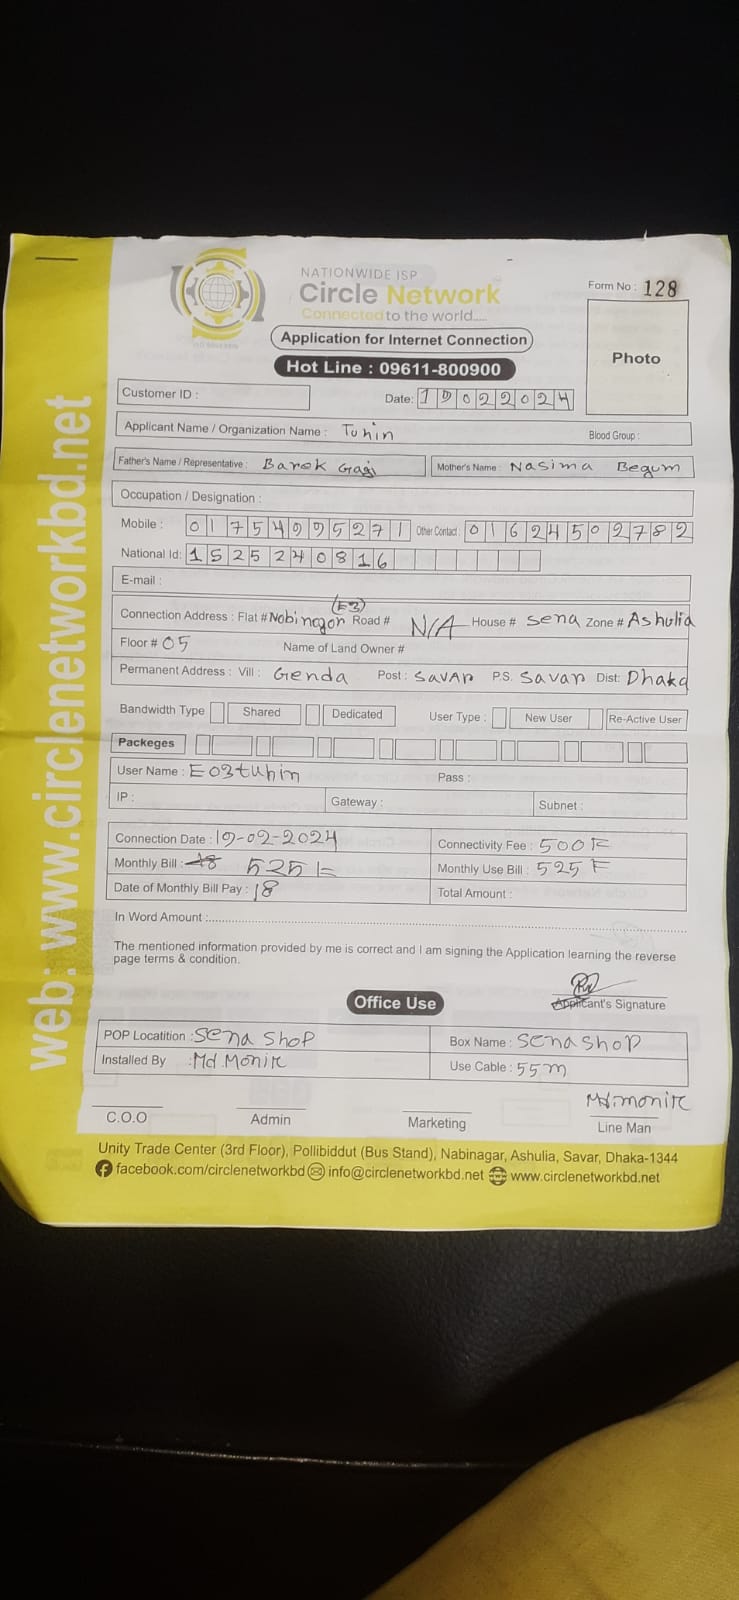 NATIONWIDE ISP
Circle Network
Connected to the world.....
Form No : 128
Application for Internet Connection
Hot Line : 09611-800900
Photo
Customer ID :
Date: 19022024
Applicant Name / Organization Name : Tuhin Blood Group :
Father's Name / Representative : Barek Gagi Mother's Name : Nasima Begum
Occupation / Designation :
Mobile : 01754995271 Other Contact : 01624502782
National Id: 1525240816
E-mail :
(E3)
Connection Address : Flat # Nobinogon Road # N/A House # Sena Zone # Ashulia
Floor # 05 Name of Land Owner #
Permanent Address : Vill : Genda Post : SavAr P.S. Savar Dist: Dhaka
Bandwidth Type Shared Dedicated User Type : New User Re-Active User
Packeges
User Name : E03tuhin Pass :
IP : Gateway : Subnet :
Connection Date : 19-02-2024 Connectivity Fee : 500
Monthly Bill : 525 Monthly Use Bill : 525
Date of Monthly Bill Pay : 18 Total Amount :
In Word Amount :
The mentioned information provided by me is correct and I am signing the Application learning the reverse
page terms & condition.
Applicant's Signature
Office Use
POP Locatition : Sena Shop Box Name : Sena Shop
Installed By : Md. Monir Use Cable : 55m
Md. monir
C.O.O Admin Marketing Line Man
Unity Trade Center (3rd Floor), Pollibiddut (Bus Stand), Nabinagar, Ashulia, Savar, Dhaka-1344
facebook.com/circlenetworkbd info@circlenetworkbd.net www.circlenetworkbd.net
web: www.circlenetworkbd.net